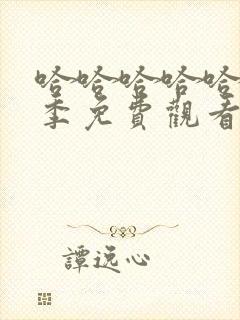 哈哈哈哈哈
季免費觀看
譚逸心